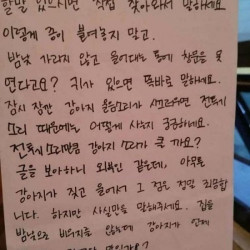 할말 있으시면 직접 찾아와서 말하세요
이렇게 종이 붙여놓지 말고.
밤낮 가리지 않고 용어대는 통에 창문을 못
연다고요? 귀가 있으면 똑바로 말하세요.
잠시 잠깐 강아지 울음소리 시끄러우면 전동기
소리 때문에는 어떻게 사는지 궁금하네요.
소리만큼 강아지 소리가 클 까요?
글을 보아하니 외부인 같은데, 아무튼
강아지가 짖고 울어서 그 점은 정말 죄송합
니다. 하지만 사실만을 말해주세요. 집을
밤낮으로 비우지를 않는데 강아지가 언제